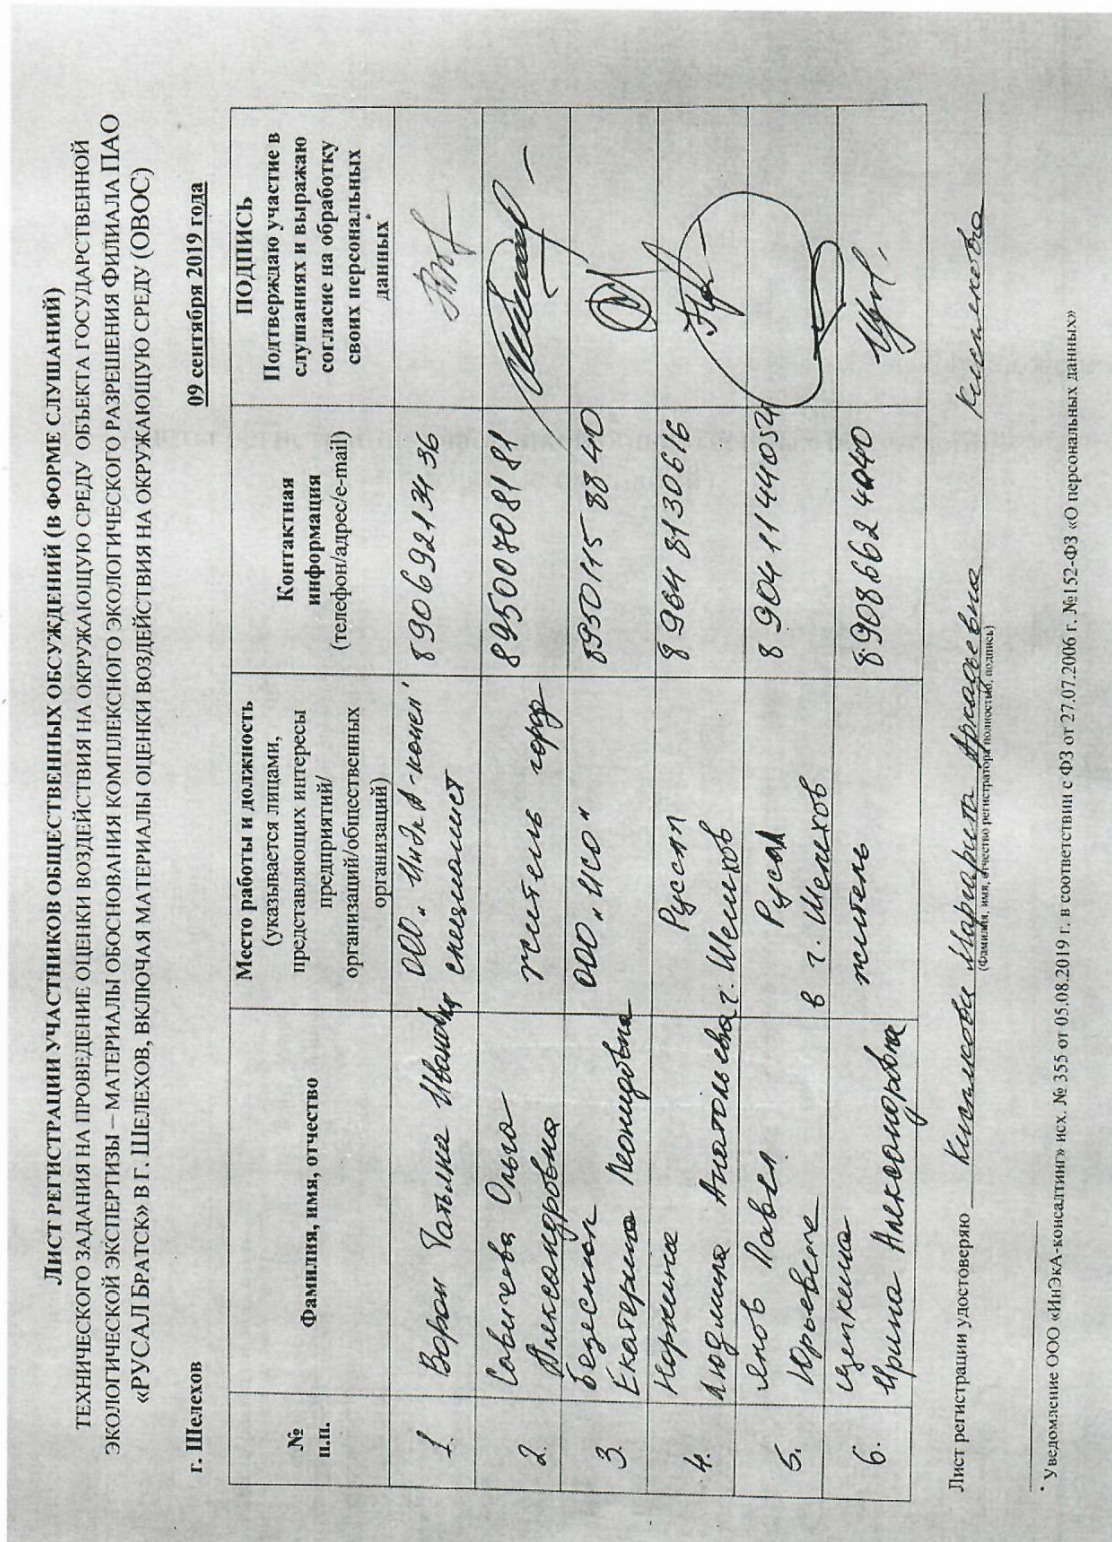 ЛИСТ РЕГИСТРАЦИИ УЧАСТНИКОВ ОБЩЕСТВЕННЫХ ОБСУЖДЕНИЙ (В ФОРМЕ СЛУШАНИЙ)
ТЕХНИЧЕСКОГО ЗАДАНИЯ НА ПРОВЕДЕНИЕ ОЦЕНКИ ВОЗДЕЙСТВИЯ НА ОКРУЖАЮЩУЮ СРЕДУ ОБЪЕКТА ГОСУДАРСТВЕННОЙ
ЭКОЛОГИЧЕСКОЙ ЭКСПЕРТИЗЫ – МАТЕРИАЛЫ ОБОСНОВАНИЯ КОМПЛЕКСНОГО ЭКОЛОГИЧЕСКОГО РАЗРЕШЕНИЯ ФИЛИАЛА ПАО
«РУСАЛ БРАТСК» В Г. ШЕЛЕХОВ, ВКЛЮЧАЯ МАТЕРИАЛЫ ОЦЕНКИ ВОЗДЕЙСТВИЯ НА ОКРУЖАЮЩУЮ СРЕДУ (ОВОС)
г. Шелехов
09 сентября 2019 года
№
п.п.
Фамилия, имя, отчество
Место работы и должность
(указывается лицами,
представляющих интересы
предприятий/
организаций/общественных
организаций)
Контактная
информация
(телефон/адрес/e-mail)
ПОДПИСЬ
Подтверждаю участие в
слушаниях и выражаю
согласие на обработку
своих персональных
данных*
1.
Ворон Татьяна Ивановна
ООО
специалист
89069213436
2.
Савичева Ольга
Александровна
житель город
89500708181
3.
Екатерина Леонидовна
ООО „ИСО"
89501158840
4.
Людмила Анатольевна
г. Шелехов
89648130616
5.
Янов Павел
Юрьевич
Русал
в г. Шелехов
89041144054
6.
Ирина Александровна
житель
89086624040
Лист регистрации удостоверяю
Маргарита Аркадьевна
(Фамилия, имя, отчество регистратора полностью, подпись)
* Уведомление ООО «ИнЭкА-консалтинг» исх. № 355 от 05.08.2019 г. в соответствии с ФЗ от 27.07.2006 г. №152-ФЗ «О персональных данных»